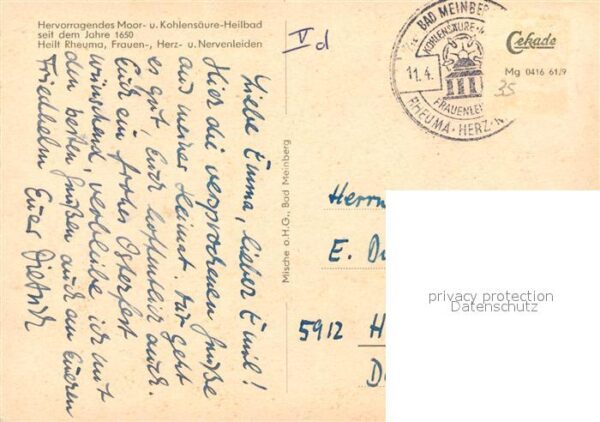 Hervorragendes Moor- u. Kohlensäure-Heilbad
seit dem Jahre 1650
Heilt Rheuma, Frauen-, Herz- u. Nervenleiden
V d
Liebe Emma, lieber Emil!
Hier die versprochenen Grüße
aus meiner Heimat. Mir geht
es gut, Euch hoffentlich auch.
Euch ein frohes Osterfest
wünschend, verbleibe ich mit
den besten Grüßen auch an Eueren
Friedhelm Euer Dietrich
Mische o.H.G., Bad Meinberg
BAD MEINBER
KOHLENSÄURE-
11.4.
FRAUENLEI
RHEUMA · HERZ ·
Cekade
Mg 0416 61/9
35
Herrn
E. Du
5912 H
D
privacy protection
Datenschutz